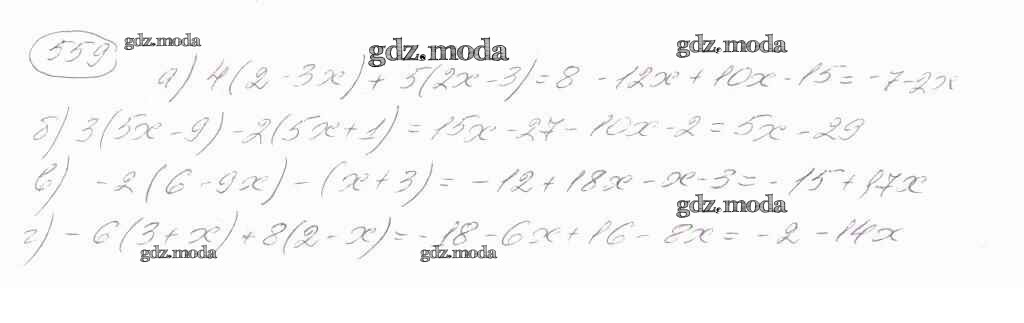 559 gdz.moda gdz.moda gdz.moda
а) 4(2-3x)+5(2x-3)=8-12x+10x-15=-7-2x
б) 3(5x-9)-2(5x+1)=15x-27-10x-2=5x-29
в) -2(6-9x)-(x+3)=-12+18x-x-3=-15+17x
gdz.moda
г) -6(3+x)+8(2-x)=-18-6x+16-8x=-2-14x
gdz.moda gdz.moda